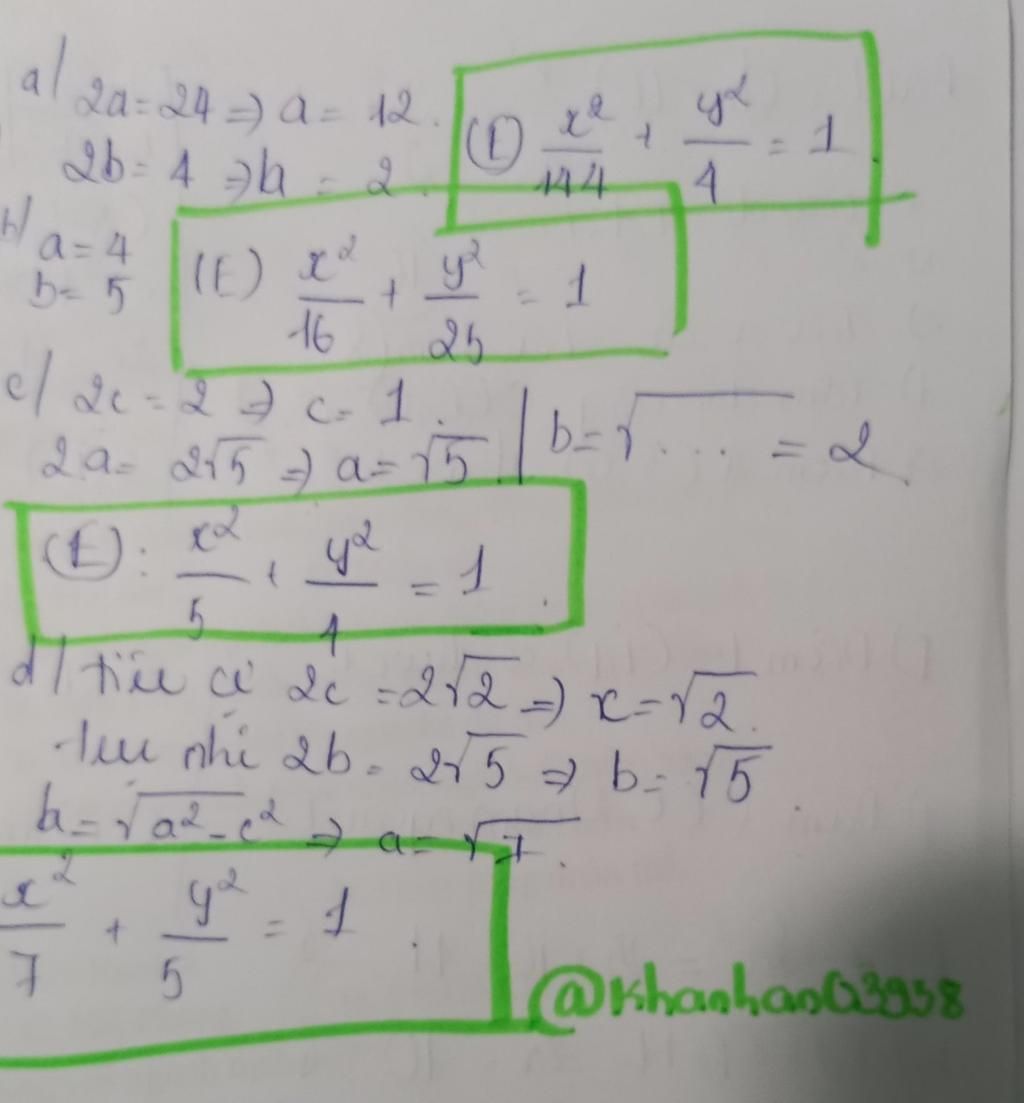 a/ 2a = 24 => a = 12.
2b = 4 => b = 2.
(E) x²/144 + y²/4 = 1
b/ a = 4
b = 5
(E) x²/16 + y²/25 = 1
c/ 2c = 2 => c = 1.
2a = 2√5 => a = √5 | b = √... = 2
(E): x²/5 + y²/4 = 1.
d/ tiêu cự 2c = 2√2 => x = √2.
trục nhỏ 2b = 2√5 => b = √5.
b = √a² - c² => a = √7.
x²/7 + y²/5 = 1.
@khanhan03958